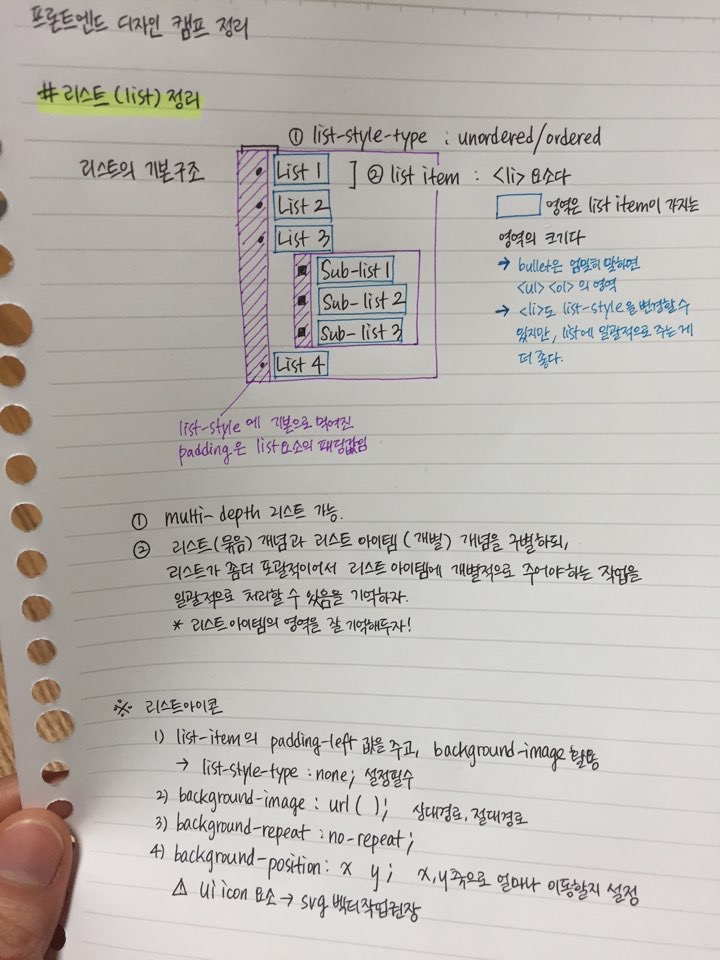 프론트엔드 디자인 캠프 정리
# 리스트 (list) 정리
① list-style-type : unordered/ordered
리스트의 기본구조
List 1
② list item : <li> 요소다
List 2
영역은 list item이 가지는
영역의 크기다
List 3
Sub-list 1
Sub-list 2
Sub-list 3
List 4
→ bullet은 엄밀히 말하면
<ul> <ol> 의 영역
→ <li>도 list-style을 변경할 수
있지만, list에 일괄적으로 주는 게
더 좋다.
list-style에 기본으로 먹여진
padding은 list요소의 패딩값임
① multi-depth 리스트 가능.
② 리스트(묶음) 개념과 리스트 아이템 (개별) 개념을 구별하되,
리스트가 좀더 포괄적이어서 리스트 아이템에 개별적으로 주어야하는 작업을
일괄적으로 처리할 수 있음을 기억하자.
* 리스트 아이템의 영역을 잘 기억해두자!
※ 리스트아이콘
1) list-item의 padding-left 값을 주고, background-image 활용
→ list-style-type : none; 설정필수
2) background-image : url ( ); 상대경로, 절대경로
3) background-repeat : no-repeat;
4) background-position : x y ; x,y축으로 얼마나 이동할지 설정
⚠ ui icon 요소 → svg 벡터작업권장